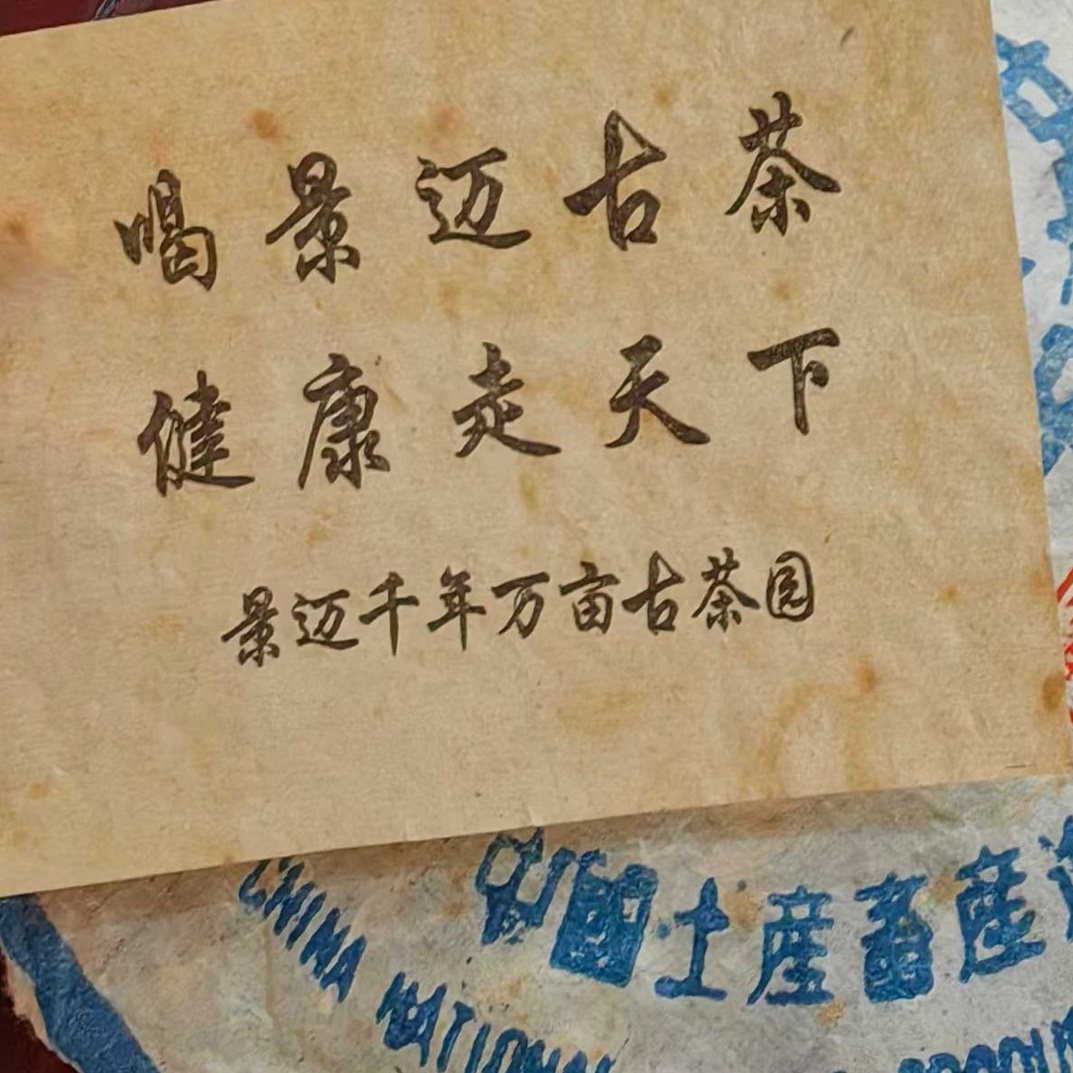 喝景迈古茶
健康走天下
景迈千年万亩古茶园
中國土産畜産
CHINA NATIONAL